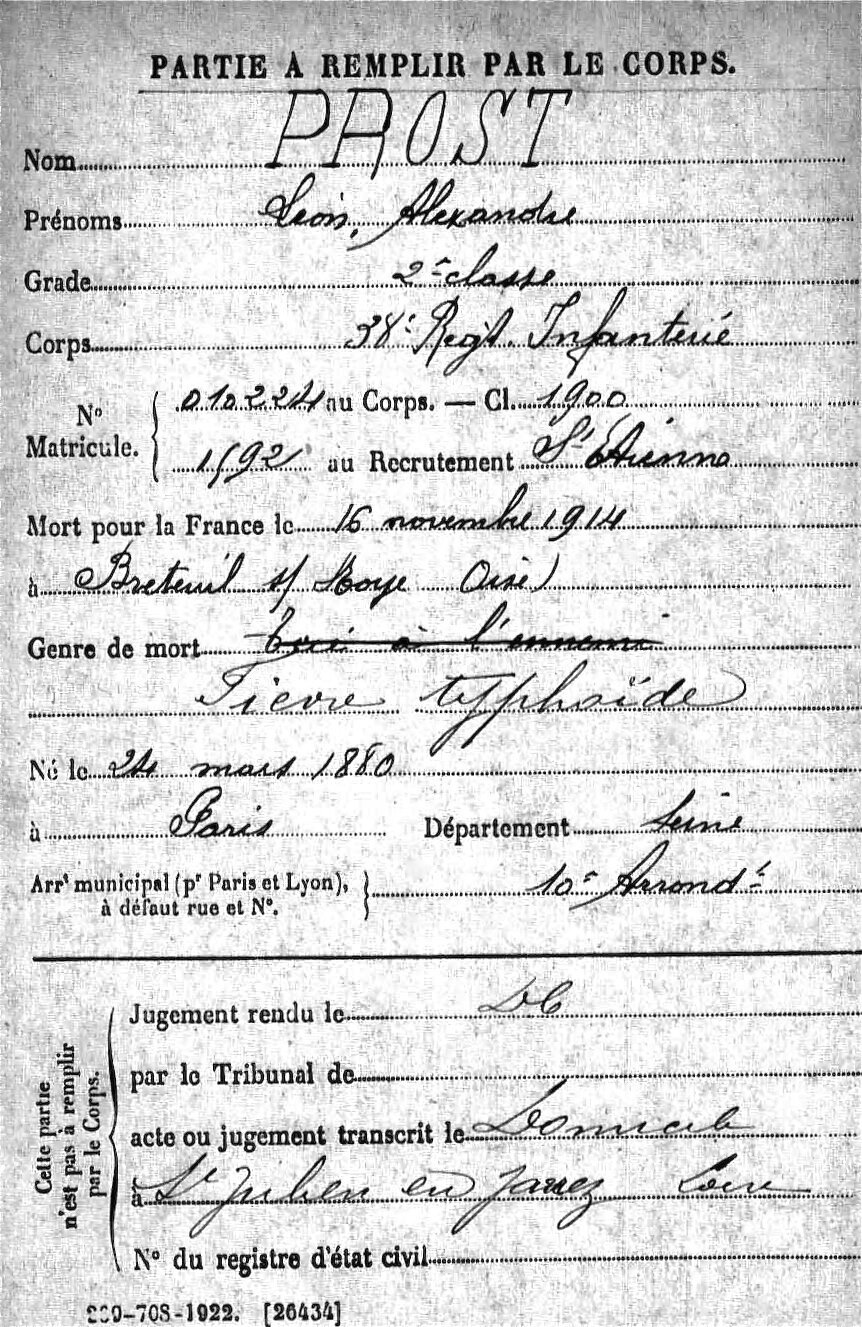 PARTIE A REMPLIR PAR LE CORPS.
Nom PROST
Prénoms Léon, Alexandre
Grade 2e classe
Corps 38e Régt. Infanterie
N° Matricule. 010224 au Corps. — Cl. 1900
1592 au Recrutement St Etienne
Mort pour la France le 16 novembre 1914
à Breteuil s/ Noye Oise)
Genre de mort Tué à l'ennemi
Fièvre typhoïde
Né le 24 mars 1880
à Paris Département Seine
Arrt municipal (pr Paris et Lyon), à défaut rue et N°. 10e Arrondt
Cette partie n'est pas à remplir par le Corps.
Jugement rendu le
par le Tribunal de
acte ou jugement transcrit le Domicile
à St Julien en Jarrez Loire
N° du registre d'état civil
-708-1922. [26434]